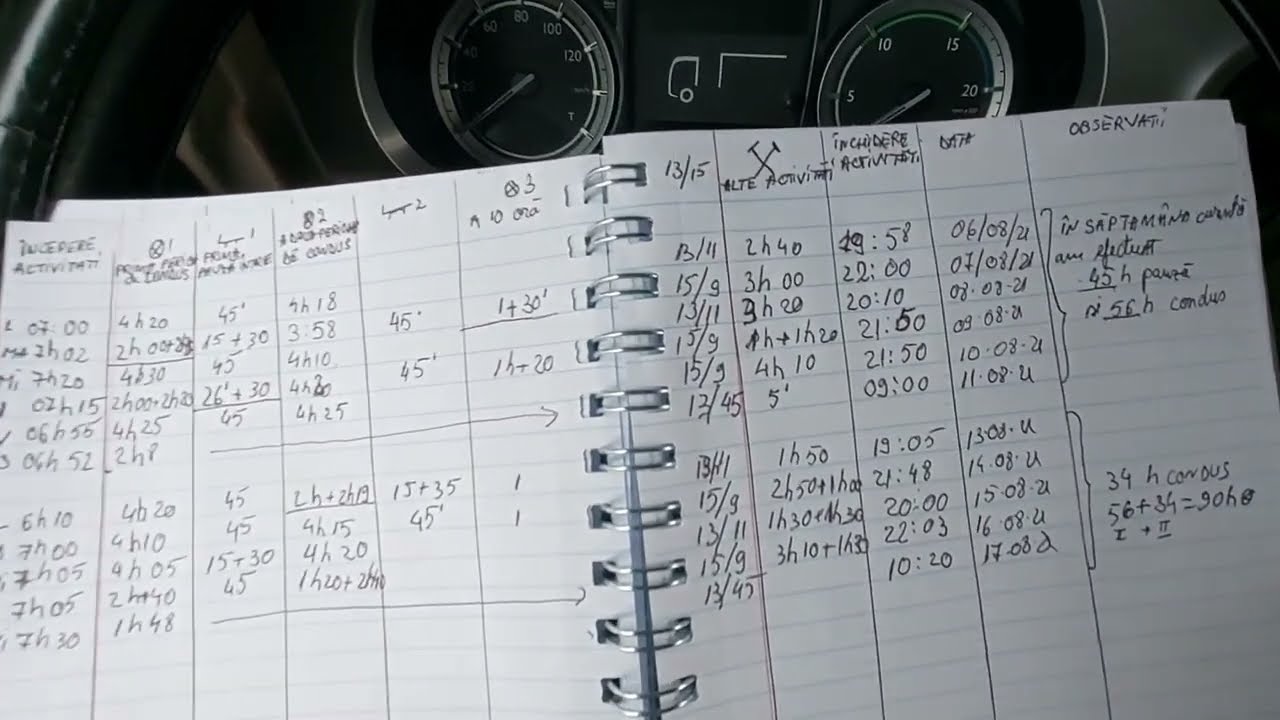 60 80 100 120
10 15
5 20
ÎNCEPERE ACTIVITATI 1 PRIMA 1 2 DE CONDUS 2 3 A 10 ORĂ 13/15 ALTE ACTIVITĂȚI ÎNCHIDERE ACTIVITĂȚI DATA OBSERVATII
07:00 4h20 45' 4h18 45' 1+30' 13/11 2h40 19:58 06/08/21
7h02 15+30 3:58 15/9 3h00 22:00 07/08/21
Mi 7h20 4h30 45 4h10 45' 1h+20 13/11 3h20 20:10 08.08.21
07h15 2h00+2h20 26'+30 15/9 1h+1h20 21:50 09.08.21
06h55 4h25 45 4h25 15/9 4h10 21:50 10.08.21
06h52 2h8 12/45 5' 09:00 11.08.21
ÎN SĂPTAMÂNA
am efectuat
45h pauză
și 56h condus
6h10 4h20 45 15+35 1 1h50 19:05 13.08.21
7h00 4h10 45 4h15 45' 1 15/9 21:48 14.08.21
7h05 4h05 15+30 4h20 13/11 20:00 15.08.21
7h05 2h+40 45 15/9 22:03 16.08.21
7h30 1h48 13/45 10:20 17.08.21
34 h condus
56+34=90h
I + II